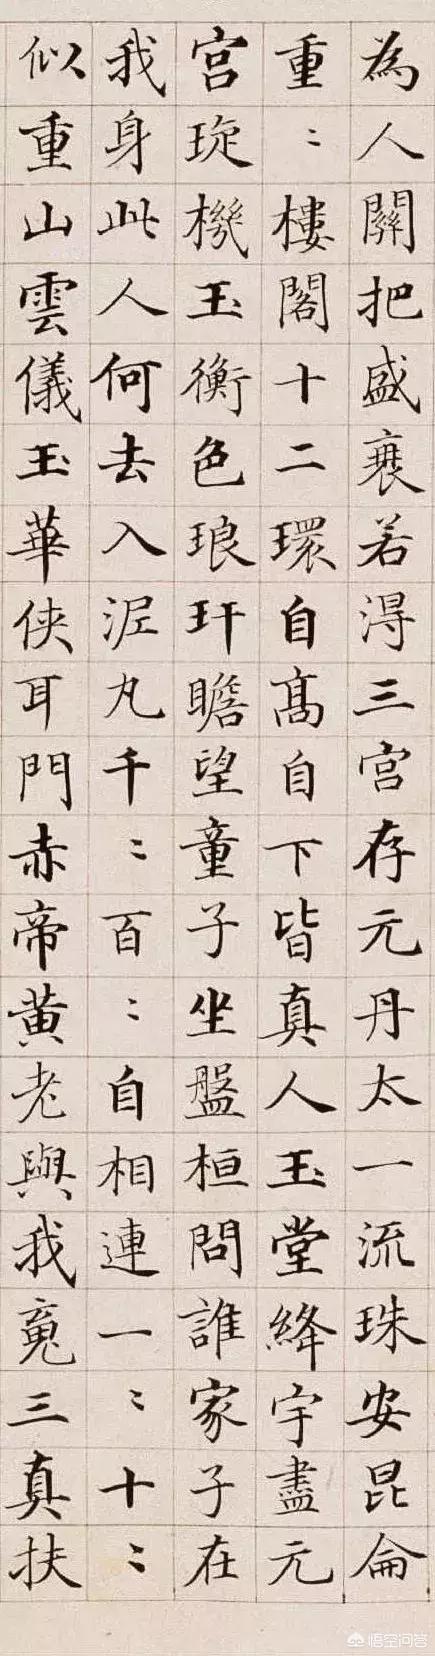 為人關把盛衰若淂三宮存元丹太一流珠安昆侖
重〻樓閣十二環自髙自下皆真人玉堂絳宇盡元
宮琁機玉衡色琅玕瞻望童子坐盤桓問誰家子在
我身此人何去入泥丸千〻百〻自相連一〻十〻
似重山雲儀玉華俠耳門赤帝黃老與我䰟三真扶
悟空问答